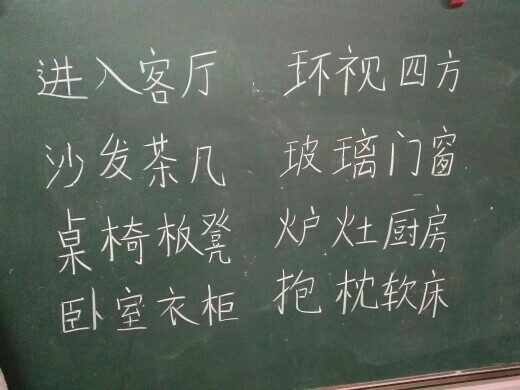 进入客厅 环视四方
沙发茶几 玻璃门窗
桌椅板凳 炉灶厨房
卧室衣柜 抱枕软床